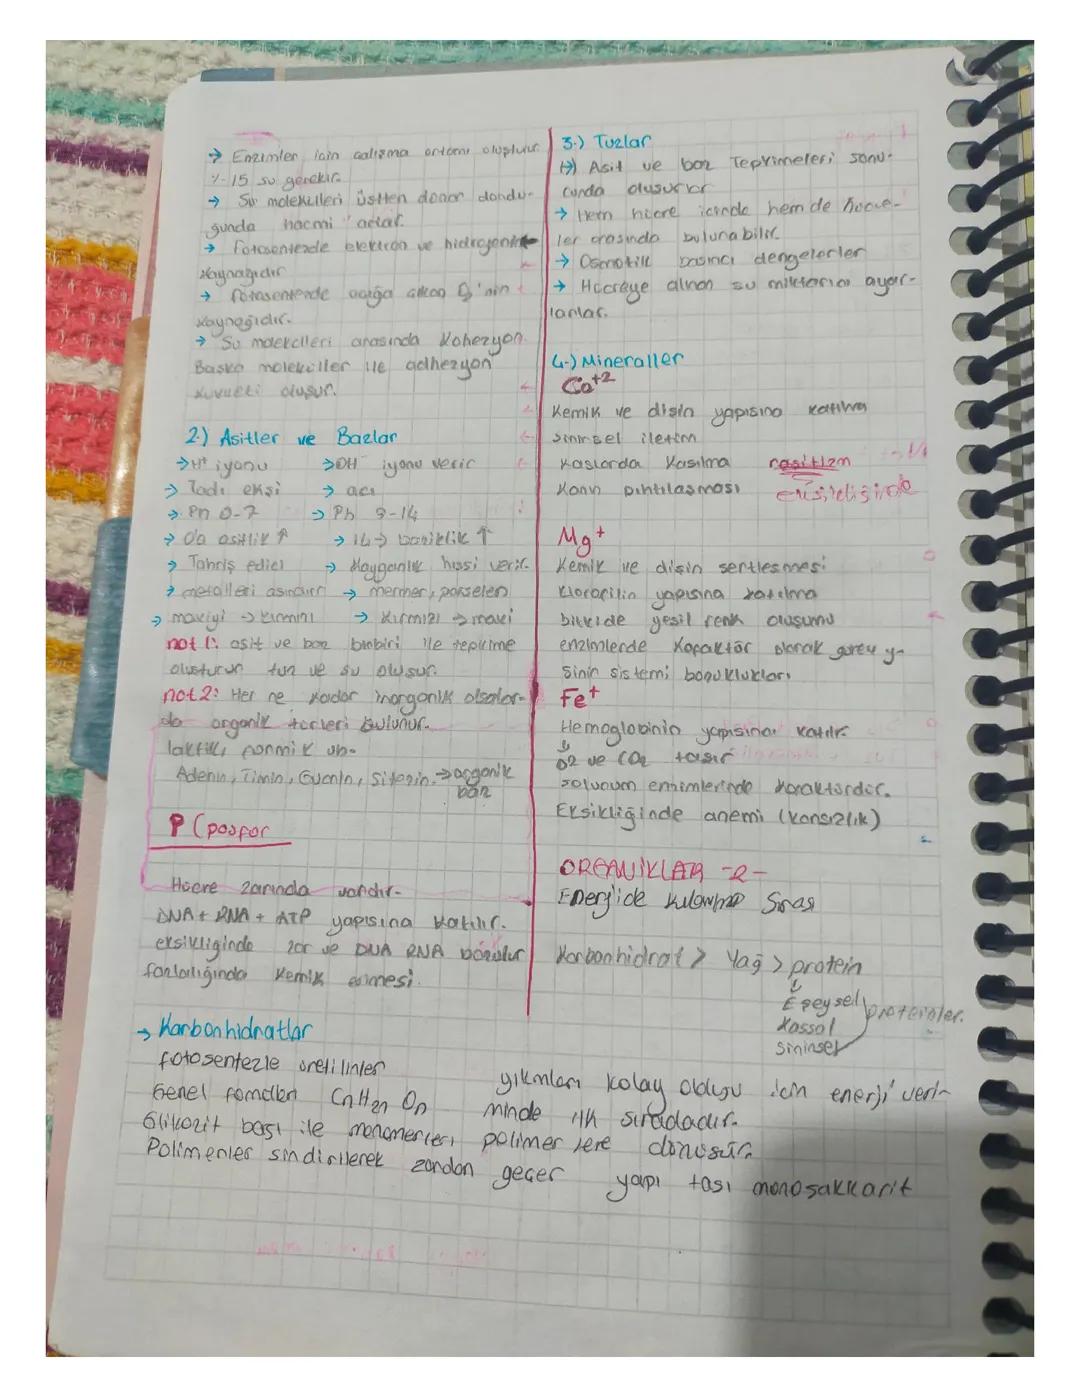 → Enzimler için çalışma ortamı oluştutur.
%15 su gerekir.
→ Su molekülleri üstten donar dondu-
ğunda hacmi artar.
→ Fotosentezde elektron ve hidrojenin
kaynağıdır
→ fotosentezde açığa çıkan O2'nin
kaynağıdır.
→ Su molekülleri arasında kohezyon
Başka moleküller ile adhezyon
kuvveti oluşur.
2.) Asitler ve Bazlar
→ H+ iyonu → OH- iyonu verir
→ Tadı ekşi → acı
→ Ph 0-7 → Ph 7-14
→ 0'a asitlik ↑ → 14 → baziklik ↑
→ Tahriş edici → Kayganlık hissi verir.
→ metalleri aşındırır → mermer, porselen
→ maviyi → kırmızı → kırmızı → mavi
not 1: asit ve baz birbiri ile tepkime
oluşturur tuz ve su oluşur.
not 2: Her ne kadar inorganik olsalar-
da organik türleri bulunur.
laktik, formik vb.
Adenin, Timin, Guanin, Sitozin → organik
baz
P (fosfor
Hücre zarında vardır.
DNA + RNA + ATP yapısına katılır.
eksikliğinde zar ve DNA RNA bozulur
fazlalığında kemik erimesi.
3.) Tuzlar
→ Asit ve baz Tepkimeleri sonu-
cunda oluşurlar
→ Hem hücre içinde hem de hücre-
ler arasında bulunabilir.
→ Osmotik basıncı dengelerler
→ Hücreye alınan su miktarını ayar-
larlar.
4.) Mineraller
Ca+2
Kemik ve dişin yapısına katılma
sinirsel iletim
Kaslarda Kasılma raşitizm
Kanın pıhtılaşması eksikliğinde
Mg+
Kemik ve dişin sertleşmesi
klorofilin yapısına katılma
bitkide yeşil renk oluşumu
enzimlerde Kofaktör olarak görev y-
Sinir sistemi bozuklukları
Fe+
Hemoglobinin yapısına katılır
↓
O2 ve CO2 taşır
solunum enzimlerinde kofaktördür.
Eksikliğinde anemi (kansızlık)
ORGANİKLER -2-
Enerjide kullanım Sırası
Karbonhidrat > Yağ > protein
↓
Eşeysel
Kassal proteinler.
Sinirsel
→ Karbonhidratlar
fotosentezle üretilirler
Genel formülleri CnH2nOn
Glikozit bağı ile monomerleri polimerlere dönüşür.
Polimerler sindirilerek zardan geçer
yıkımları kolay olduğu için enerji veri-
minde ilk sıradadır.
yapı taşı monosakkarit